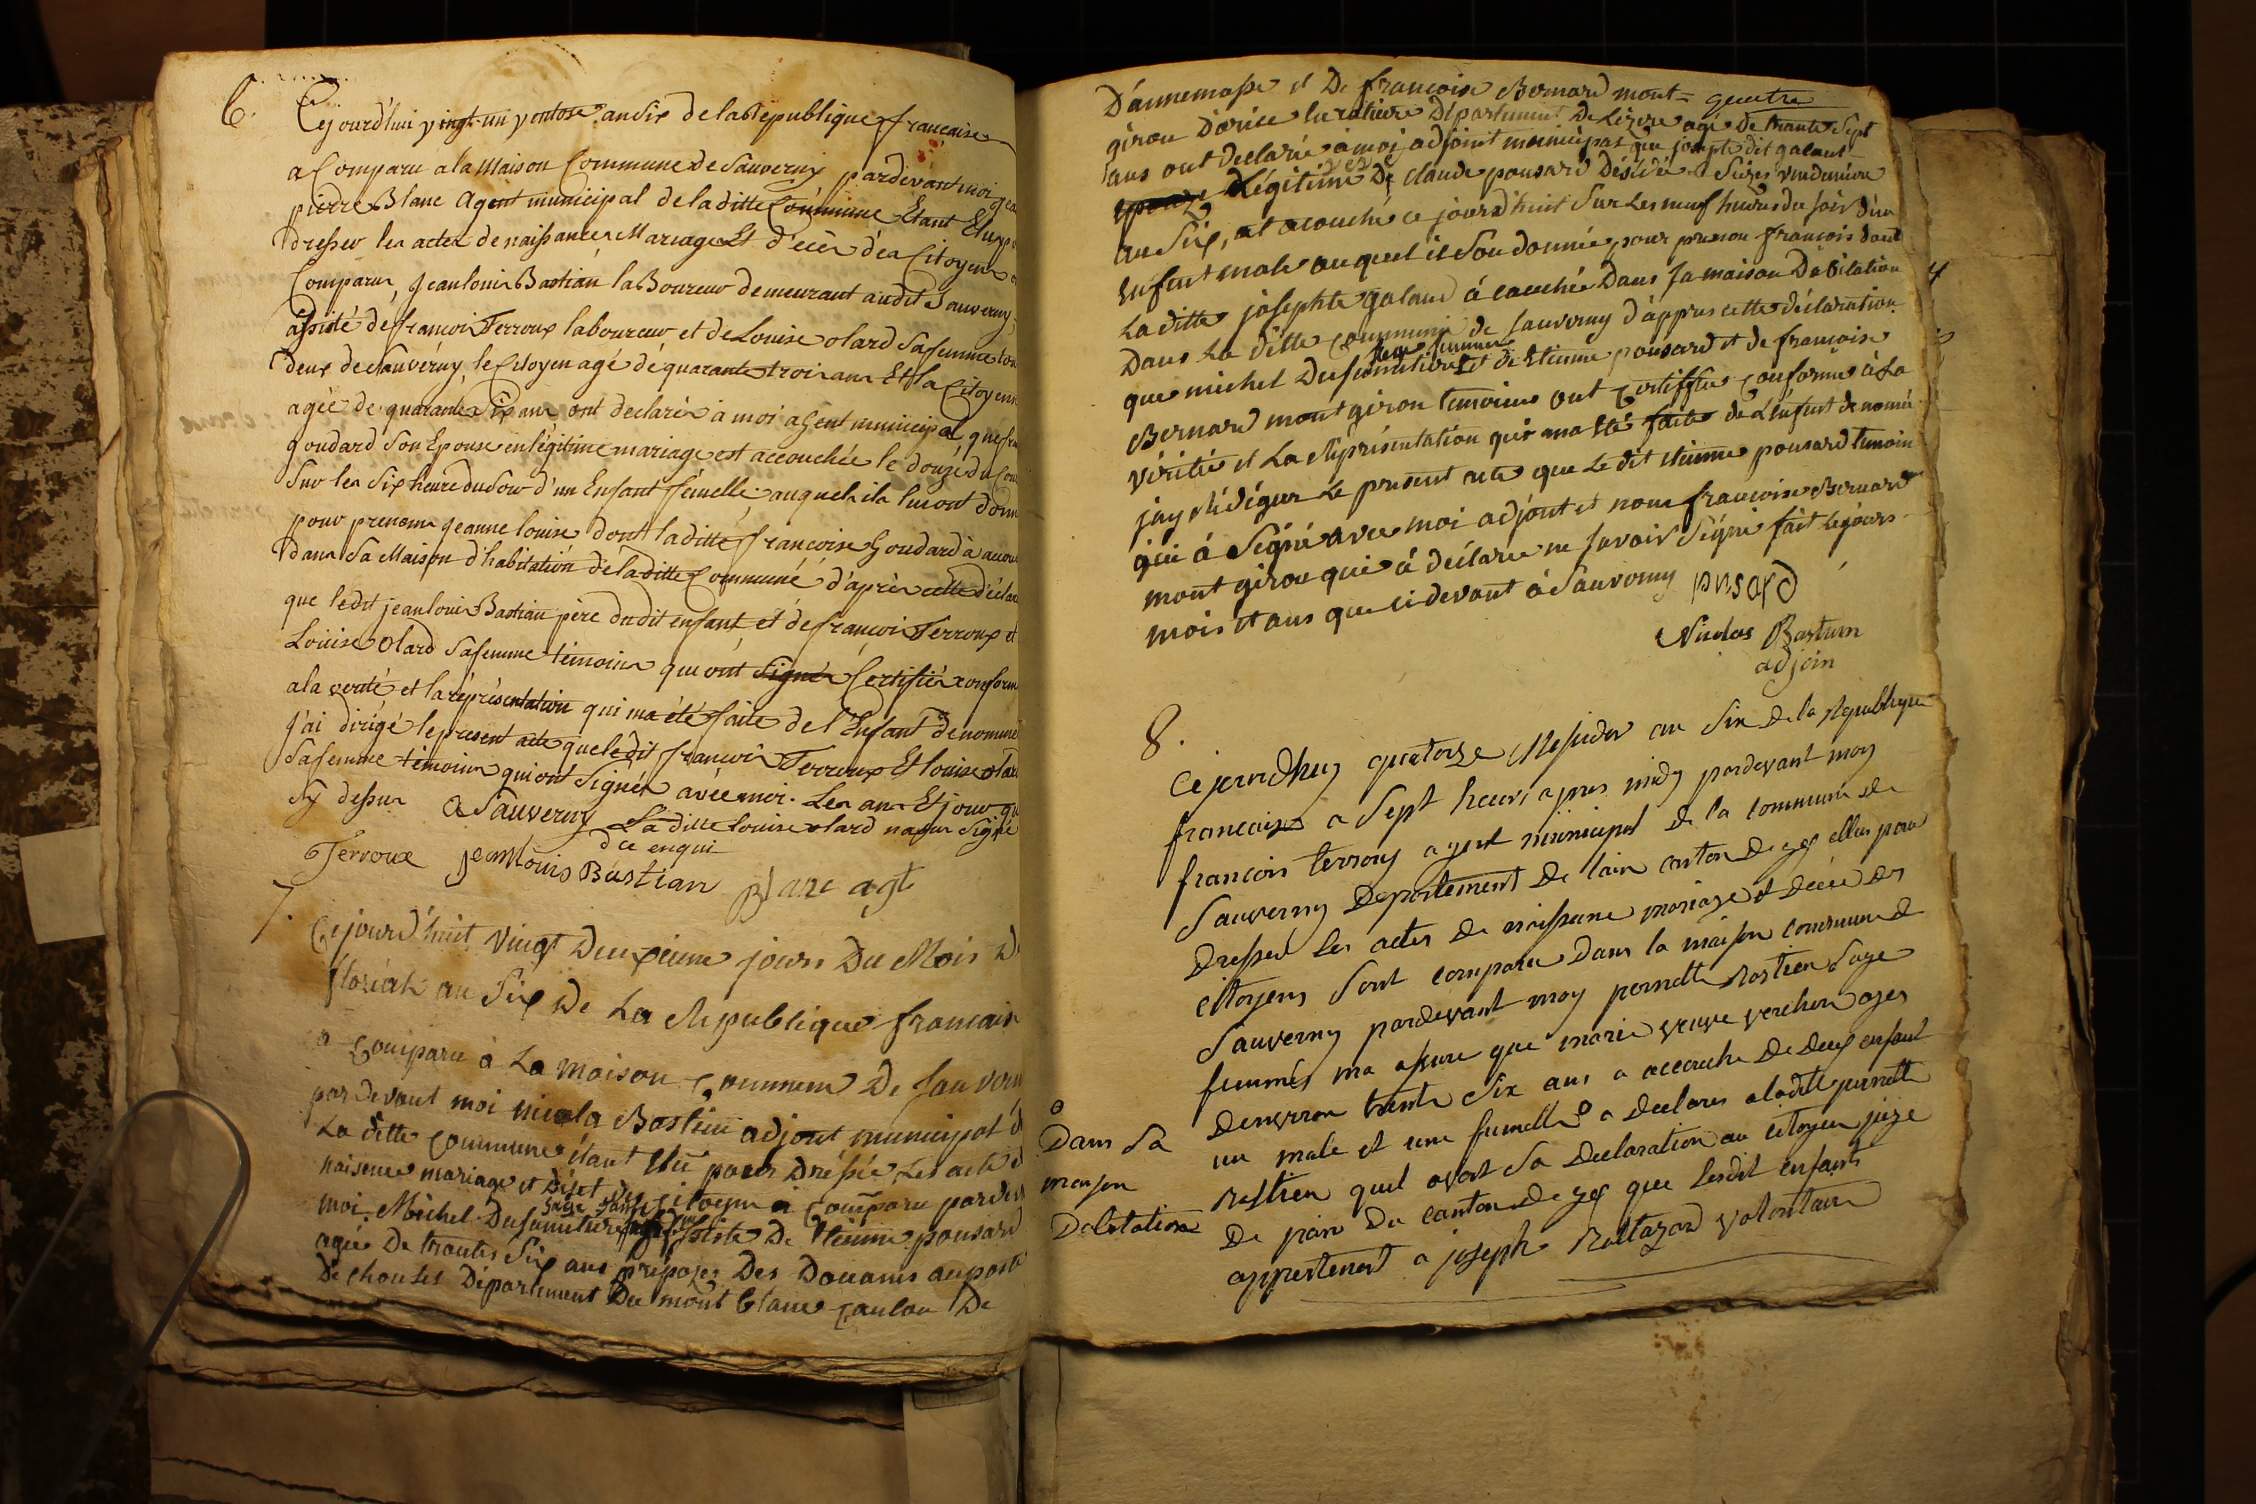 6.
Cejourd'hui vingt-un ventose an Six de la République française
a Comparu a la Maison Commune de Sauverny pardevant moi
pierre Blanc Agent municipal de la ditte Commune Etant Elu
dresser les actes de naissances Mariages Et décès des Citoyens
Comparus, jeanlouis Bastian laBoureur demeurant audit Sauverny,
assisté de françois Terroux laboureur et de Louise olard Safemme
deux de Sauverny, le Citoyen agé de quarante trois ans Et la Citoyenne
agée de quarante Six ans ont declarés à moi agent municipal que
goudard Son Epouse en légitime mariage est accouchée le douze du
Sur les Six heure du Soir d'un Enfant femelle, auquel ils lui ont
pour prenom jeanne louise dont laditte françoise Goudard à
dans Sa Maison d'habitation de laditte Commune d'après cette
que ledit jeanlouis Bastian père du dit enfant et de françois Terroux et
Louise Olard Safemme témoins qui ont Signés Certifiés conforme
a la verité et la réprésentation qui ma été faite de l'Enfant denommé
j'ai dirigé le present acte que ledit françois Terroux Et louise olard
Safemme témoins qui ont Signés avec moi. Les an Et jour
Sy dessus a Sauverny La ditte louise olard
Terroux jeanlouis Bastian Blanc agt
7.
Cejourd'huit vingt Deuxieme jours Du Mois
floréal an Six De La République française
a Comparu à La maison Commune De Sauverny
par devant moi nicola Bastian adjoint municipal
La ditte commune étant élu pour Dréssée Les acte
naisence mariage et Déset des citoyen à Comparu
sage famme
moi Michel assisté De Etienne ponsard
agée De trante Six ans préposez Des Douanes au poste
De Département Du mont blanc canton De
D'annemasse et De francoise Bernard mont- quatre
giron Département De agé de trante Sept
ans ont declarée à moi adjoint municipal que josephte dit galand
Légitime De claude ponsard
an Six, at acouché ce jourd'huit Sur Les neuf heures du soir d'un
enfent male auquel il Son donnée pour prenon françois dont
La ditte josephte galand à cauchée Dans sa maison Dabitation
Dans La ditte commune de Sauverny d'appres cette déclaration
sage famme
que michel et de Etienne ponsard et de francoise
Bernard mont giron temoins ont Certiffiée conforme à La
vérité et La Réprésentation qui ma été faite de L'énfent denomée
jay Rédigéer Le present acte que Le dit etienne ponsard temoin
qui à Signé avec moi adjoint et non francoise Bernard
mont giron qui à declarée ne savoir Signé fait Lejours
mois et ans que ci devant à Sauverny
ponsard
Nicolas Bastian
adjoin
8.
Cejourdhuy quatorze Messidor an Six de la Republique
francaise a Sept heurs apres midy pardevant moy
francois terroux agent municipal de la commune de
Sauverny Departement de lain canton de gex ellus pour
Dressed les actes de naissance mariage et decée des
citoyens sont comparu Dans la maison commune de
Sauverny pardevant moy pernette Bastien Sage
fumme ma assure que marie veuve verchon agez
denviron trente Six ans a accouche De deux enfant
un male et une fumelle a declarer aladitte pernette
Bastien quel avoit sa Declaration au citoyen juge
De paix Du canton de gex que lesdit enfants
appertenent a joseph Baltazard volontaire
Dans sa
maison
Dabitation